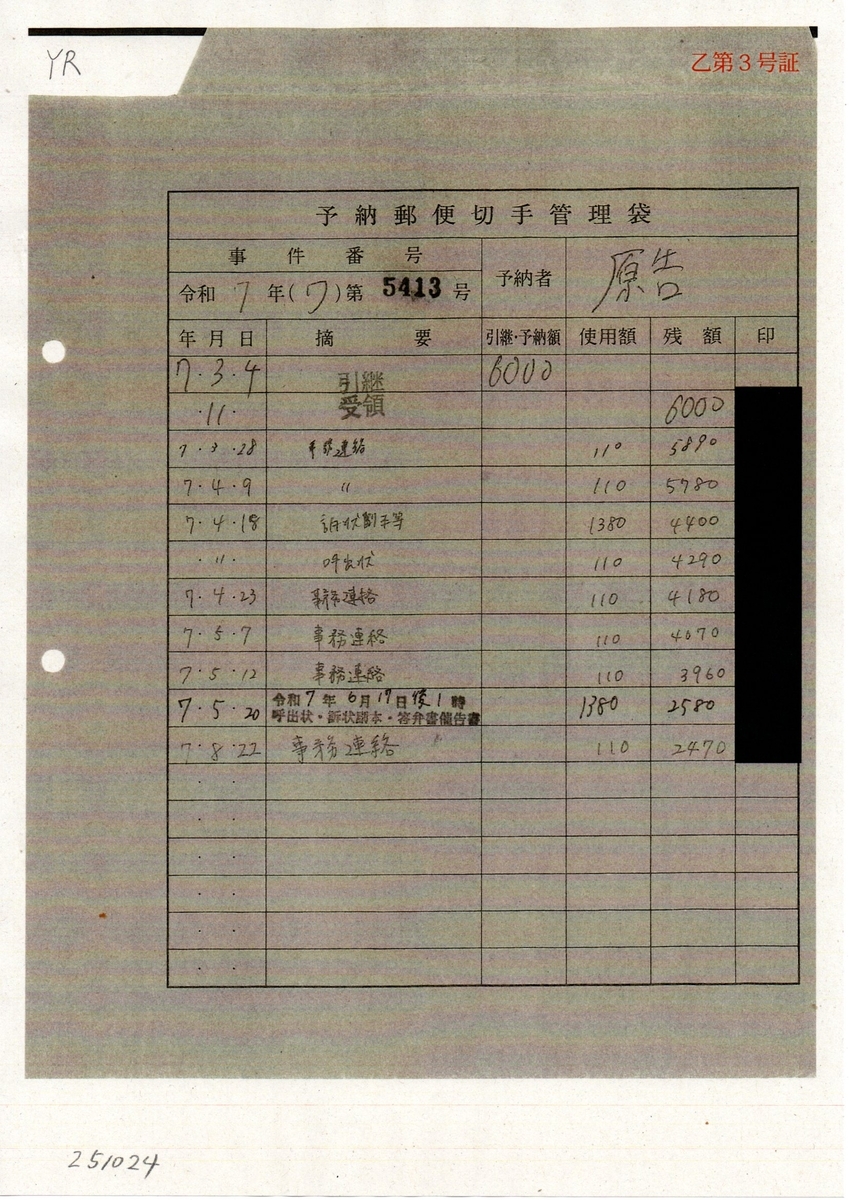 YR
乙第3号証
予納郵便切手管理袋
事件番号 予納者 原告
令和 7 年(ワ)第 5413 号
年月日 摘要 引継・予納額 使用額 残額 印
7・3・4 引継 6000
・11・ 受領 6000
7・3・28 事務連絡 110 5890
7・4・9 〃 110 5780
7・4・18 訴状副本等 1380 4400
・〃・ 呼出状 110 4290
7・4・23 事務連絡 110 4180
7・5・7 事務連絡 110 4070
7・5・12 事務連絡 110 3960
7・5・20 令和7年6月17日後1時 1380 2580
呼出状・訴状副本・答弁書催告書
7・8・22 事務連絡 110 2470
251024